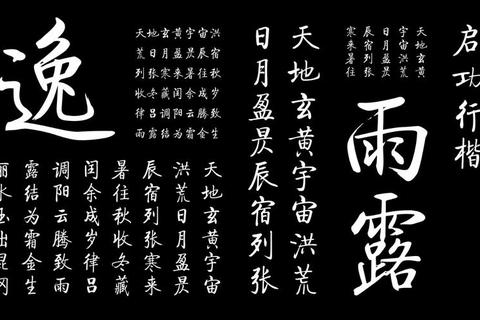 启功行楷
天地玄黄
宇宙洪荒
日月盈昃
辰宿列张
寒来暑往
雨露
天地玄黄宇宙洪荒
日月盈昃辰宿列张
天地玄黄宇宙洪
荒日月盈昃辰宿
列张寒来暑往秋
收冬藏闰余成岁
律吕调阳云腾致
雨露结为霜金生
逸
天地玄黄宇宙
洪荒日月盈昃
辰宿列张寒来
暑往秋收冬藏
闰余成岁律吕
调阳云腾致雨
露结为霜金生
丽水玉出昆冈